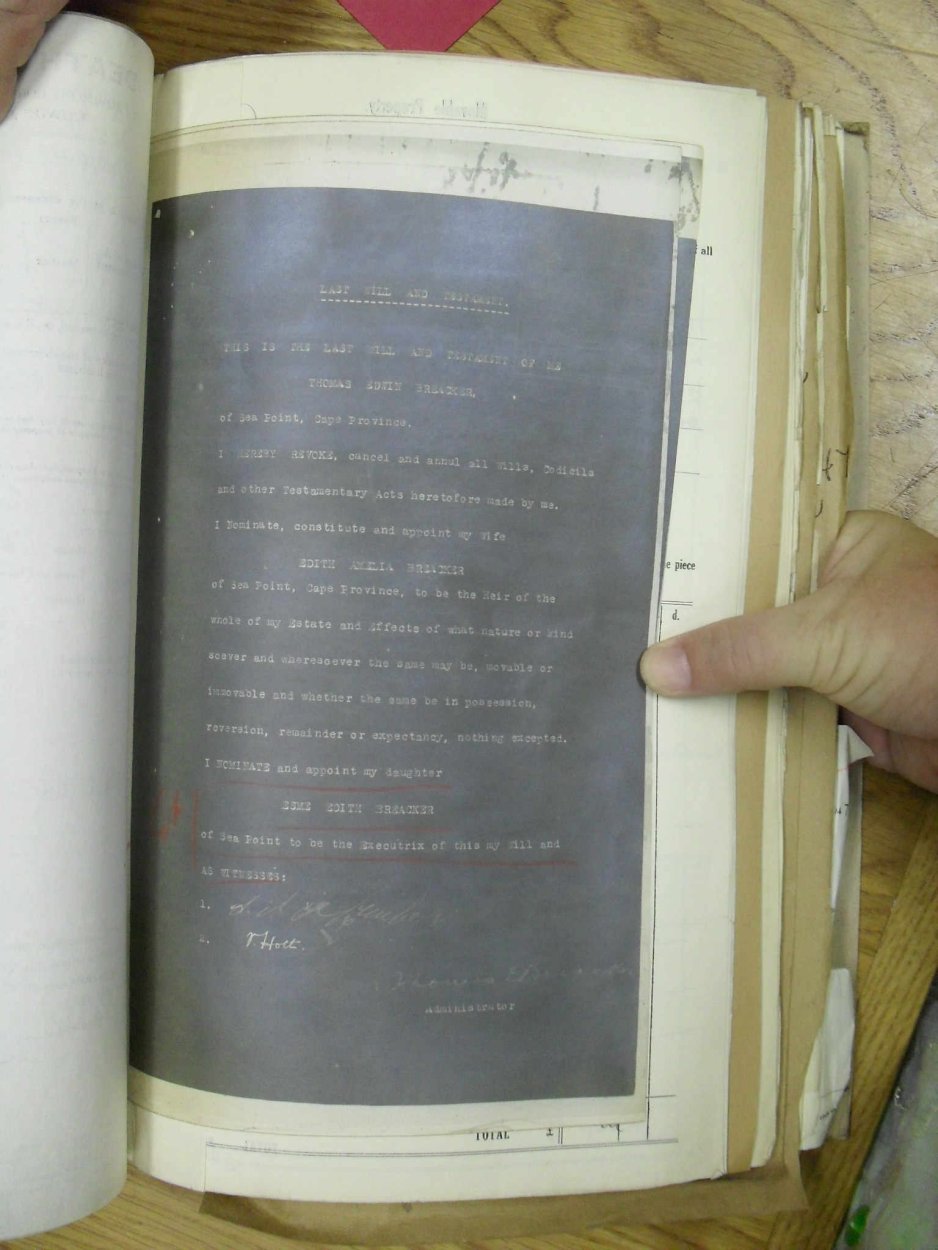 Movable Property
all
LAST WILL AND TESTAMENT.
THIS IS THE LAST WILL AND TESTAMENT OF ME
THOMAS EDWIN BREACKER,
of Sea Point, Cape Province.
I HEREBY REVOKE, cancel and annul all Wills, Codicils
and other Testamentary Acts heretofore made by me.
I Nominate, constitute and appoint my Wife
EDITH AMELIA BREACKER
of Sea Point, Cape Province, to be the Heir of the
whole of my Estate and Effects of what nature or kind
soever and wheresoever the same may be, movable or
immovable and whether the same be in possession,
reversion, remainder or expectancy, nothing excepted.
I NOMINATE and appoint my daughter
ESME EDITH BREACKER
of Sea Point to be the Executrix of this my Will and
AS WITNESSES:
1.
2. V. Holt.
Administrator
e piece
d.
TOTAL £